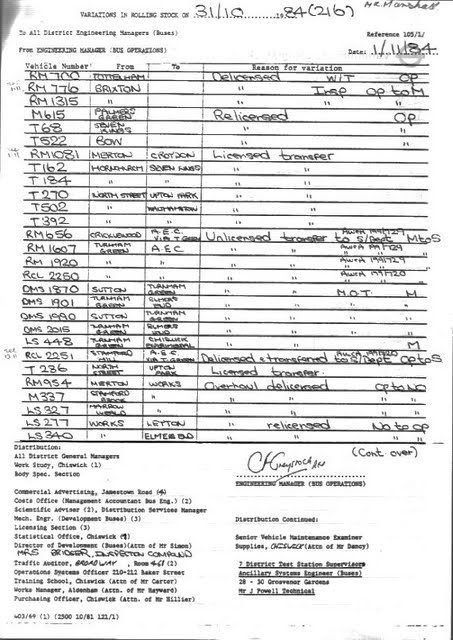 VARIATIONS IN ROLLING STOCK ON 31/10 84 (216) Mr Marshall
To All District Engineering Managers (Buses) Reference 105/1/
From ENGINEERING MANAGER (BUS OPERATIONS) Date: 1/11/84
Vehicle Number From To Reason for variation
RM 700 TOTTENHAM Delicensed WIT OP
RM 776 BRIXTON " Insp OP to M
RM 1315 " " " "
M615 PALMERS GREEN Relicensed OP
T68 SEVEN KINGS " "
T522 BOW " "
RM1081 MERTON CROYDON Licensed transfer
T162 HORNCHURCH SEVEN KINGS "
T184 " " "
T270 NORTH STREET UPTON PARK "
T502 " WALTHAMSTOW "
T392 " " "
RM656 CRICKLEWOOD A.E.C. VIA T. GREEN Unlicensed transfer to S/Dept M to S
RM 1607 TURNHAM GREEN A.E.C "
RM 1920 " " "
RCL 2250 " " "
DMS 1870 SUTTON TURNHAM GREEN " M.O.T. M
DMS 1901 TURNHAM GREEN ELMERS END " " "
DMS 1990 SUTTON TURNHAM GREEN " " "
DMS 2015 TURNHAM GREEN ELMERS END " " "
LS 448 TURNHAM GREEN CHISWICK " M
RCL 2251 STAMFORD HILL A.E.C. VIA T. GREEN Delicensed & transferred to S/Dept OP to S
T 236 NORTH STREET UPTON PARK Licensed transfer
RM954 MERTON WORKS Overhaul delicensed OP to NO
M337 STAMFORD BROOK " " " "
LS327 HARROW WEALD " " " "
LS277 WORKS LEYTON " relicensed No to OP
LS340 " ELMERS END " " "
(Cont. over)
Distribution:
All District General Managers
Work Study, Chiswick (1)
Body Spec. Section
ENGINEERING MANAGER (BUS OPERATIONS)
Commercial Advertising, Jamestown Road (4)
Costs Office (Management Accountant Bus Eng.) (2)
Scientific Adviser (2), Distribution Services Manager
Mech. Engr. (Development Buses) (3) Distribution Continued:
Licensing Section (3)
Statistical Office, Chiswick Senior Vehicle Maintenance Examiner
Director of Development (Buses)(Attn of Mr Simon) Supplies, CHISWICK (Attn of Mr Dancy)
MRS BRIDGER, INSPECTION COMPOUND
Traffic Auditor, BROADWAY, Room 461 (2) 7 District Test Station Supervisors
Operations Systems Officer 210-212 Baker Street Ancillary Systems Engineer (Buses)
Training School, Chiswick (Attn of Mr Carter) 28 - 30 Grosvenor Gardens
Works Manager, Aldenham (Attn of Mr Hayward) Mr J Powell Technical
Purchasing Officer, Chiswick (Attn of Mr Hillier)
403/69 (1) (2500 10/81 121/1)